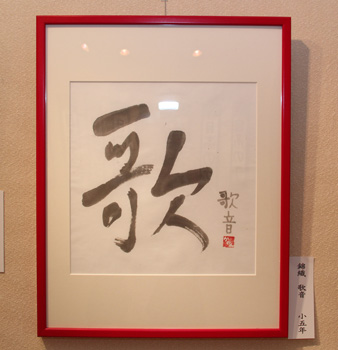 歌
歌音
錦織 歌音 小五年